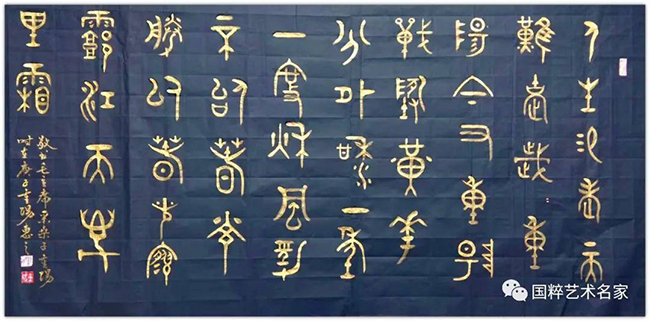 人生易老天
難老歲重
陽今又重陽
戰地黃花
分外香一年
一度秋風勁
不似春光
勝似春光寥
廓江天萬
里霜
敬书毛主席采桑子重陽
时在庚子重陽
国粹艺术名家